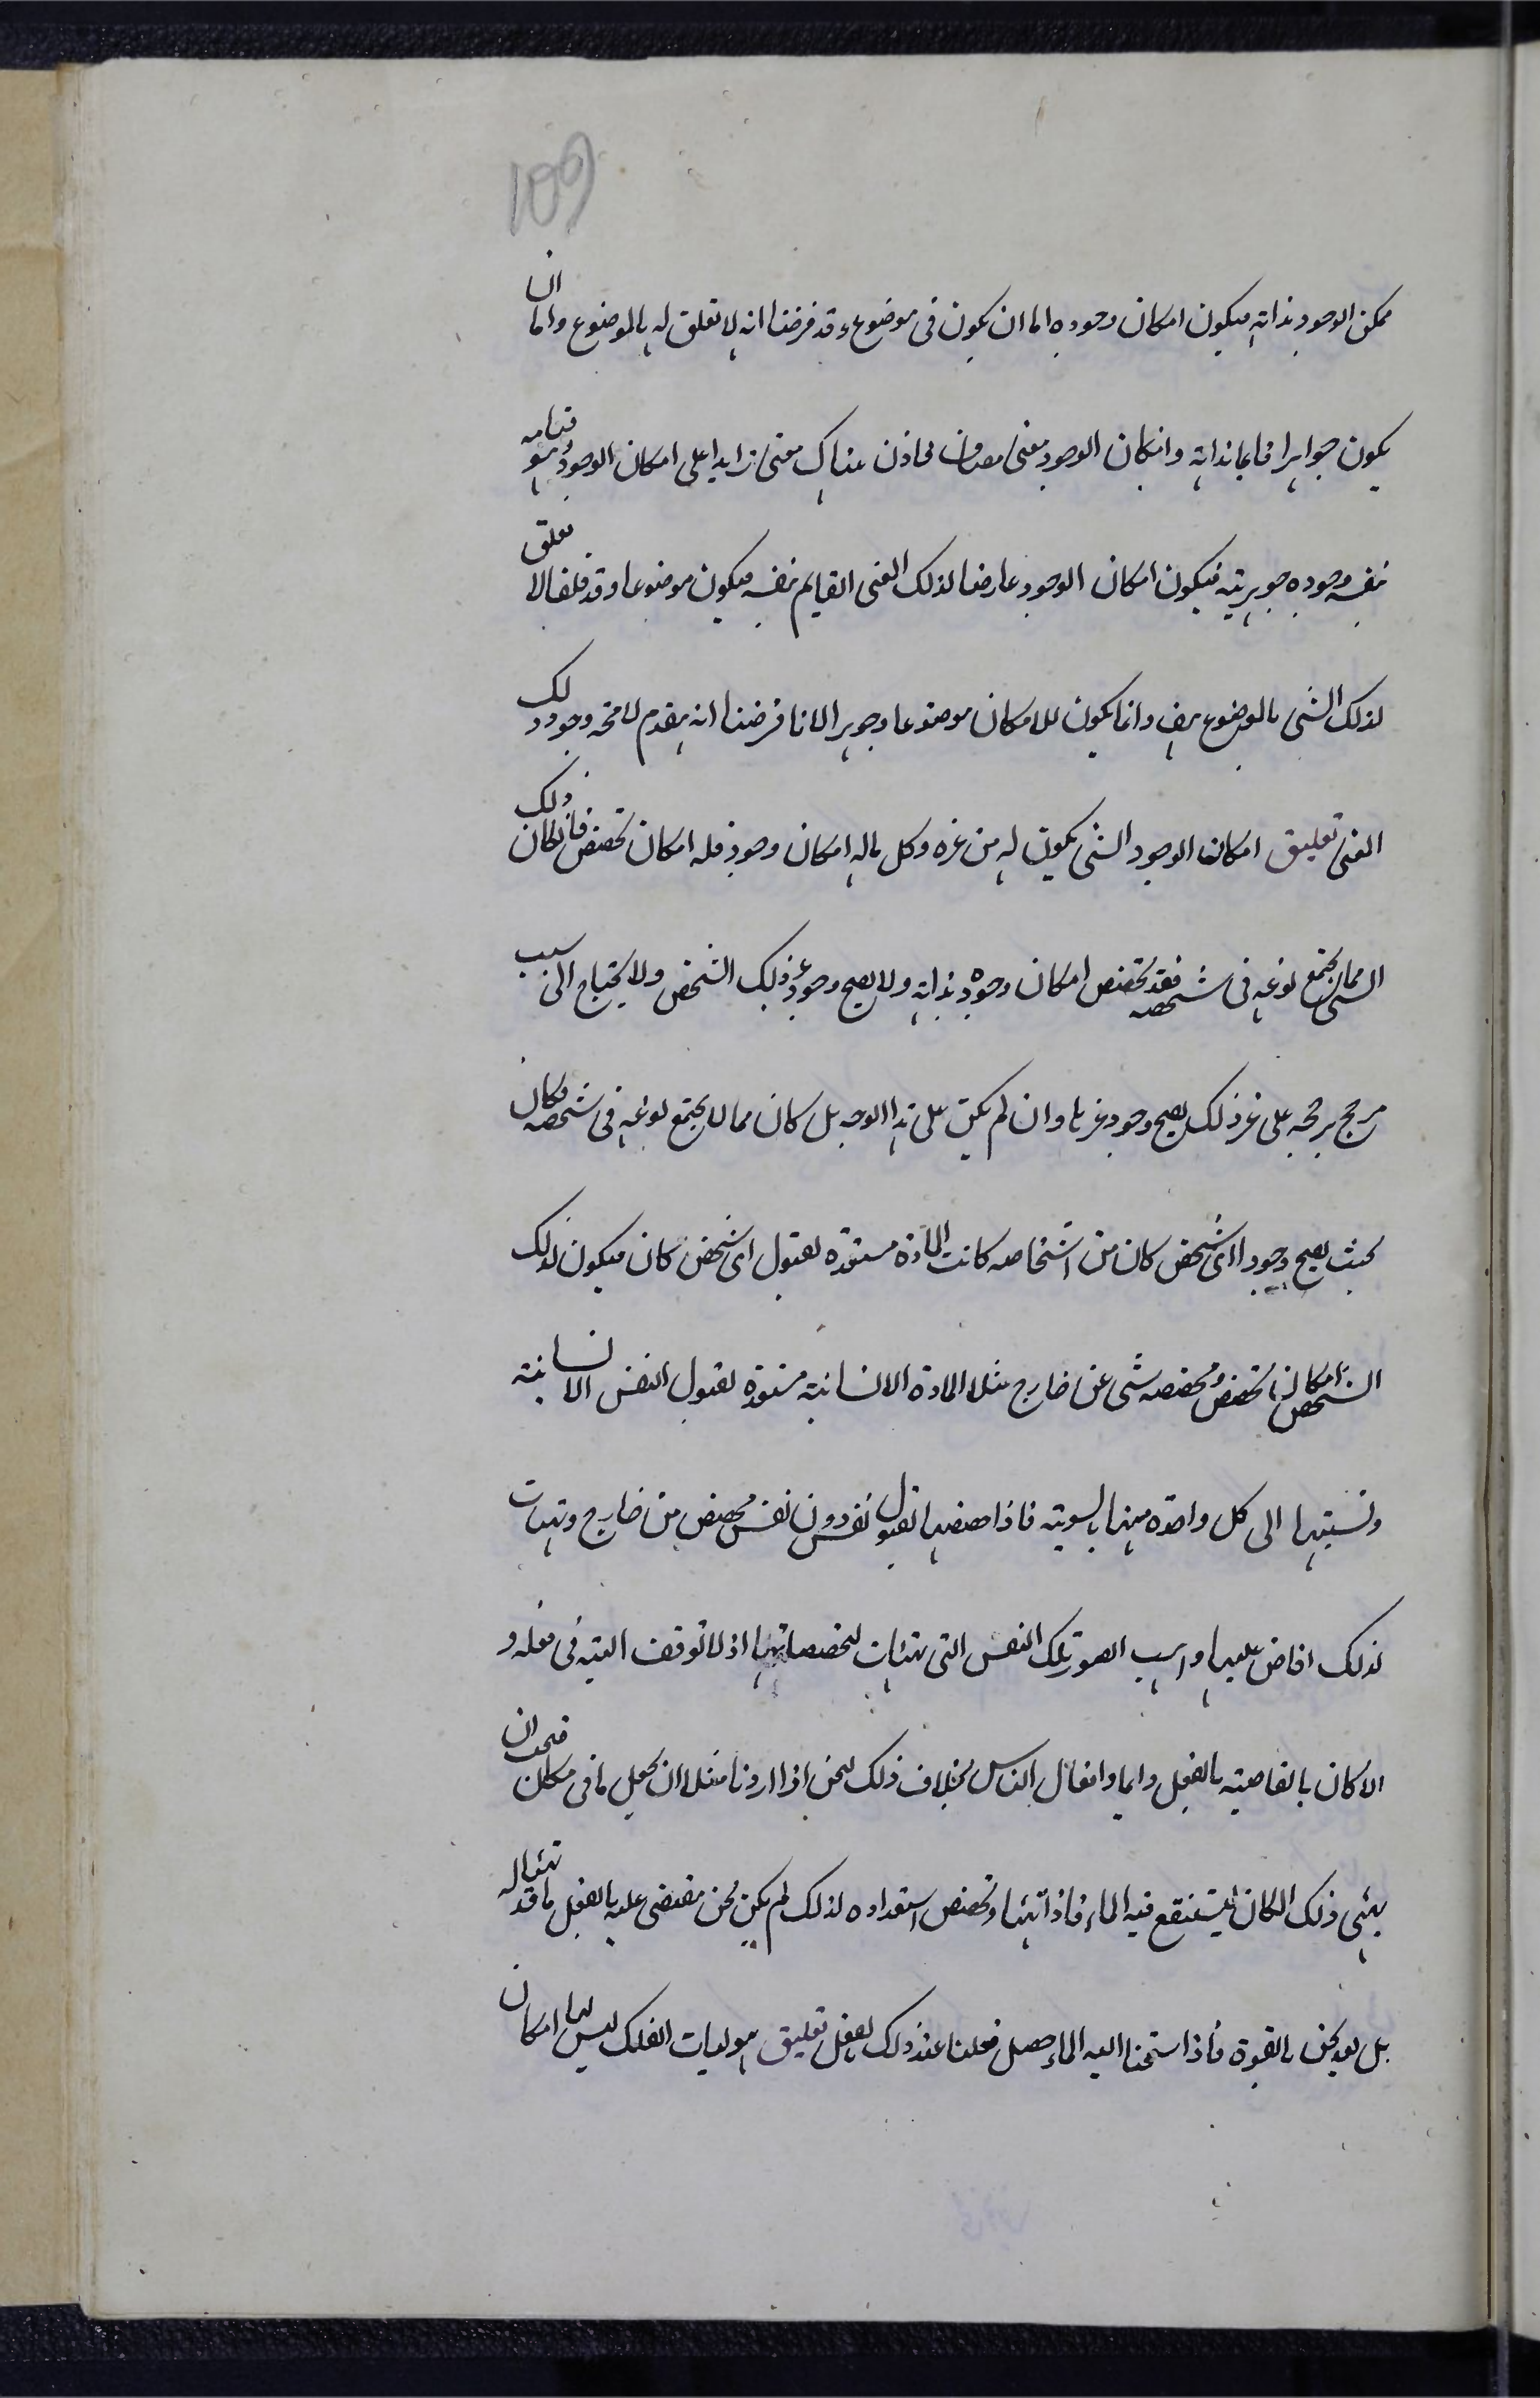 109
ممكن الوجود بذاته فيكون امكان وجوده اما ان يكون فى موضوع وقد فرضنا انه لا تعلق له بالموضوع واما ان
يكون جوهرا قايما بذاته وامكان الوجود معنى مضاف فاذن هناك معنى زايدا على امكان الوجود وهو قيامه
بنفسه وجوده جوهريته فيكون امكان الوجود عارضا لذلك الغنى القايم بنفسه فيكون موضوعا وقد قلنا لا تعلق
لذلك الشى بالموضوع بهف وانما يكون للامكان موضوعا وجوهرا لانا فرضنا انه يقدم وجود ذلك
الغنى تعليق امكان الوجود الشى يكون له من غيره وكل ماله امكان وجود فله امكان تخصص فان كان ذلك
الشى مما يجتمع نوعه فى شخصه فقد تخصص امكان وجوده بذاته ولا يصح وجود غير ذلك الشخص ولا يحتاج الى سبب
مرجح يرجحه على غير ذلك يصح وجود غيرها وان لم يكن على هذا الوجه بل كان مما لا يجتمع نوعه فى شخصه وكان
بحيث يصح وجود اى شخص كان من اشخاصه كانت المادة مستعدة لقبول اى شخص كان فيكون لذلك
الشخص امكان ما تخصص ومخصصه شى عن خارج مثلا المادة الانسانية مستعدة لقبول النفس الانسانية
ونسبتها الى كل واحدة منها بالسوية فاذا خصصها لقبول نفس دون نفس مخصص من خارج وتهيات
لذلك افاض عليها واهب الصور تلك النفس التى تهيات لتخصصاتها اذ لا توقف البتة فى فعله و
الا كان بالخاصية بالفعل دايما وافعال الناس بخلاف ذلك لنحن اذا اردنا مثلا ان نجعل ما فى مكان فيجب ان
يهئى ذلك المكان ليستنقع فيه الماء فاذا تهيا وتخصص استعداده لذلك لم يكن نحن مفيضى عليه بالفعل ما قد تهيا له
بل بعد نحن بالقوة فاذا استحنا اليه الماء حصل فعلنا عند ذلك بالفعل تعليق هيوليات الفلك ليس لها امكان